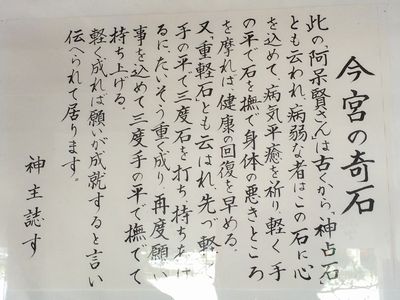 今宮の奇石
此の、阿呆賢さんは古くから、神占石
とも云われ、病弱な者はこの石に心
を込めて、病気平癒を祈り軽く手
の平で石を撫で、身体の悪きところ
を摩れば、健康の回復を早める。
又、重軽石とも云はれ、先づ軽く
手の平で三度石を打ち持ち
るに、たいそう重く成り、再度願い
事を込めて、三度手の平で撫でて
持ち上げる。
軽く成れば願いが成就すると言い
伝へられて居ります。
神主誌す